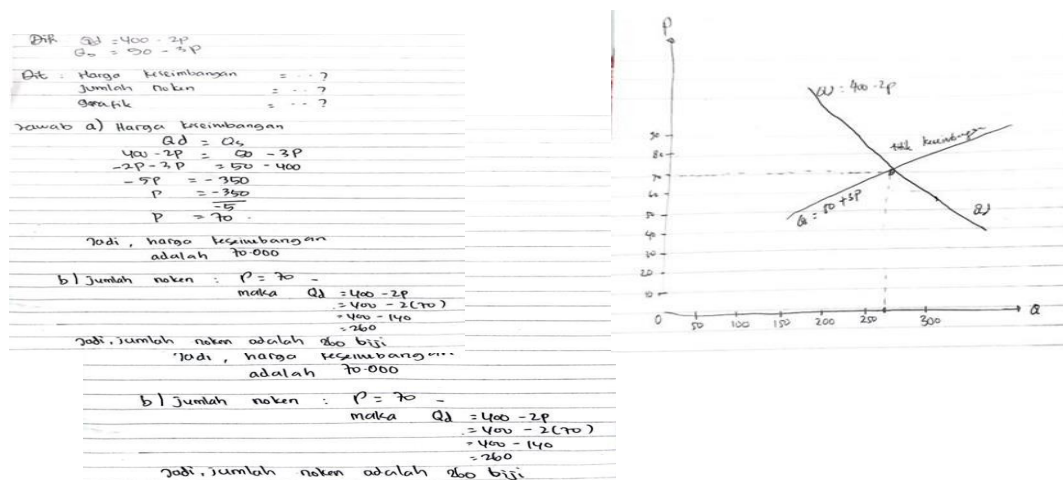 Dik Qd = 400 - 2P
Qs = 50 - 3P
Dit : Harga keseimbangan = ... ?
Jumlah noken = ... ?
grafik = ... ?
Jawab a) Harga keseimbangan
Qd = Qs
400 - 2P = 50 - 3P
-2P - 3P = 50 - 400
-5P = -350
P = -350
-5
P = 70 .
Jadi, harga keseimbangan
adalah 70.000
b) Jumlah noken : P = 70 -
maka Qd = 400 - 2P
= 400 - 2(70)
= 400 - 140
= 260
Jadi, jumlah noken adalah 260 biji
Jadi, harga keseimbangan
adalah 70.000
b) Jumlah noken : P = 70 -
maka Qd = 400 - 2P
= 400 - 2(70)
= 400 - 140
= 260
Jadi, jumlah noken adalah 260 biji
P
Qd : 400 - 2P
titik keseimbangan
80
70
60
50
40
20
10
Qs = 50 + 3P
Qd
0 50 100 150 200 300 Q